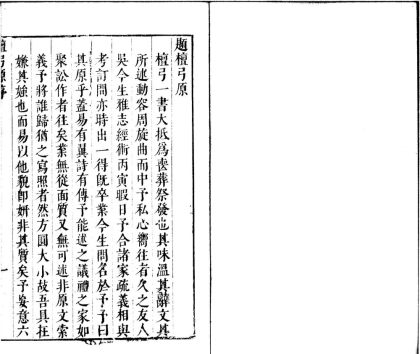 題檀弓原
檀弓一書大抵爲喪葬祭發也其味溫其辭文其
所述動容周旋曲而中予私心嚮往者久之友人
吳今生雅志經術丙寅暇日予合諸家疏義相與
考訂問亦時出一得旣卒業今生問名於予予曰
其原乎蓋易有翼詩有傳予能述之議禮之家如
聚訟作者往矣業無從面質又無可述非原文索
義予將誰歸猶之寫照者然方圓大小故吾具在
嫌其媸也而易以他貌卽妍非其質矣予妄意六
檀弓原
一